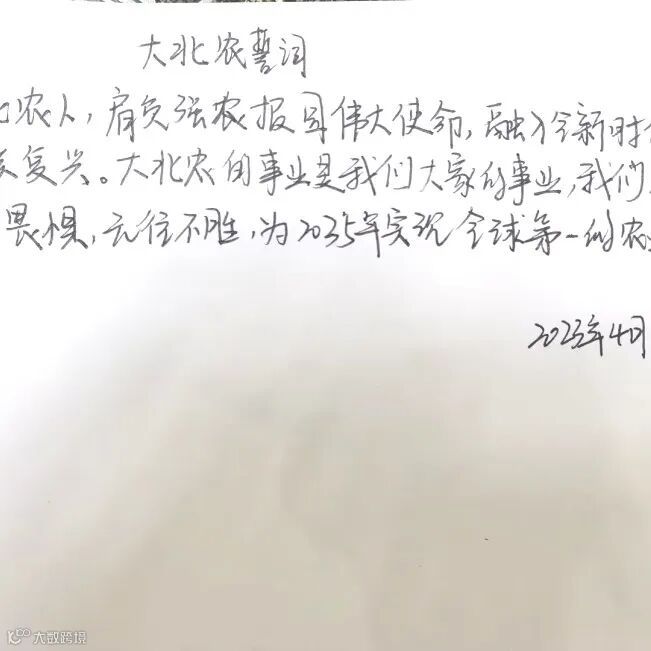 大北农誓词
北农人，肩负强农报国伟大使命，融入今新时代
族复兴。大北农的事业是我们大家的事业，我们
畏惧，无往不胜，为2035年实现全球第一的农
2023年4月
大数跨境